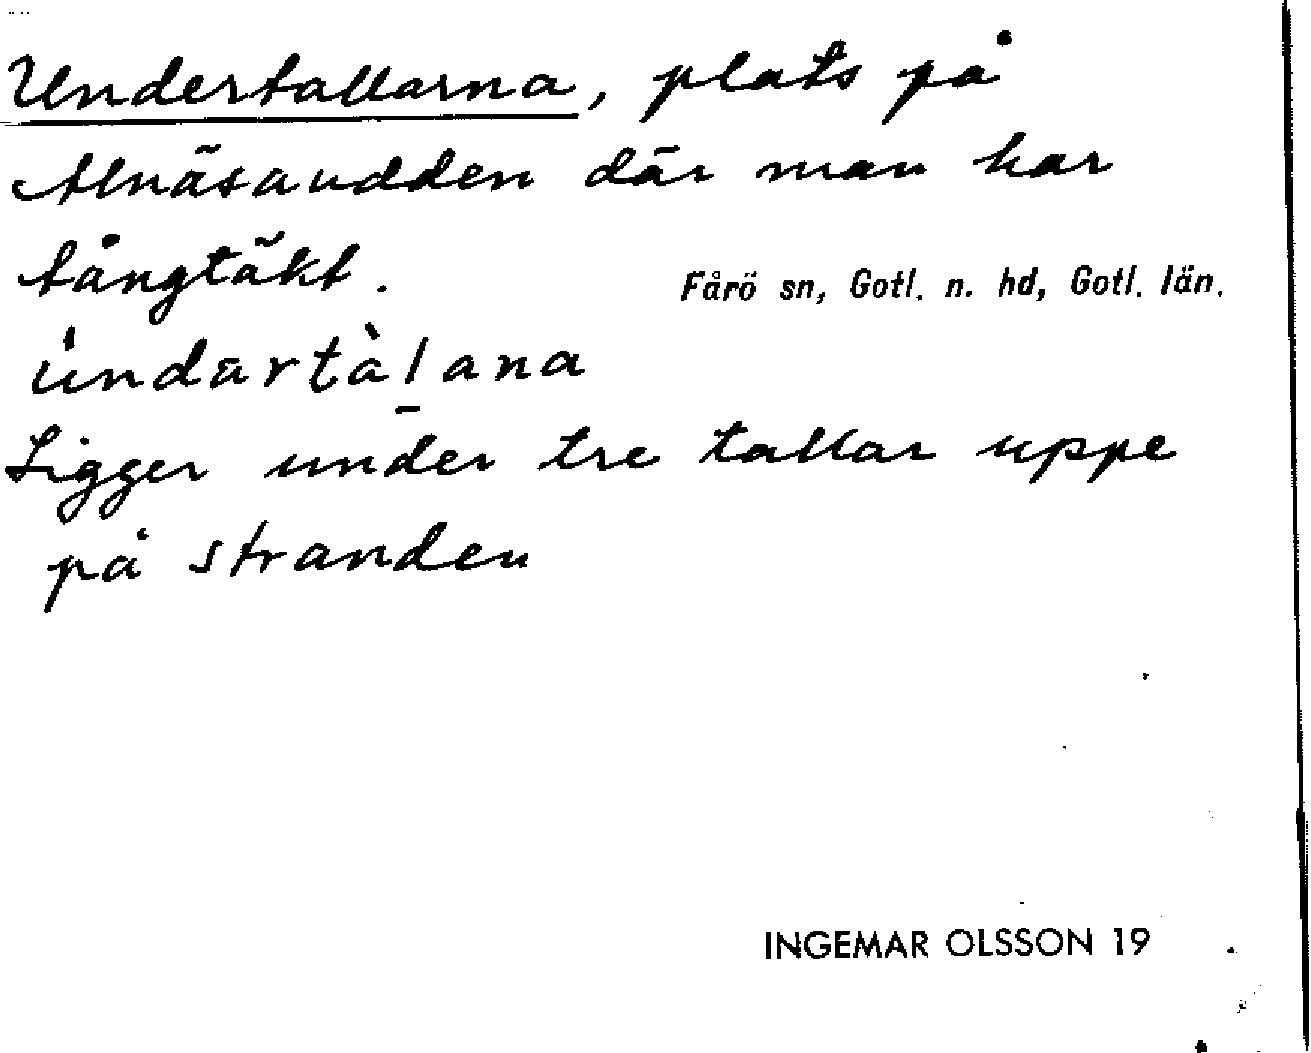 Undertallarna, plats på
Alnäsaudden där man har
tångtäkt.
Fårö sn, Gotl. n. hd, Gotl. län.
úndartàlana
Ligger under tre tallar uppe
på stranden
INGEMAR OLSSON 19